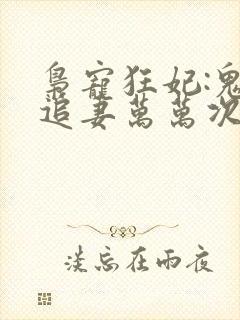 梟寵狂妃:鬼
追妻萬萬次
淡忘在雨夜